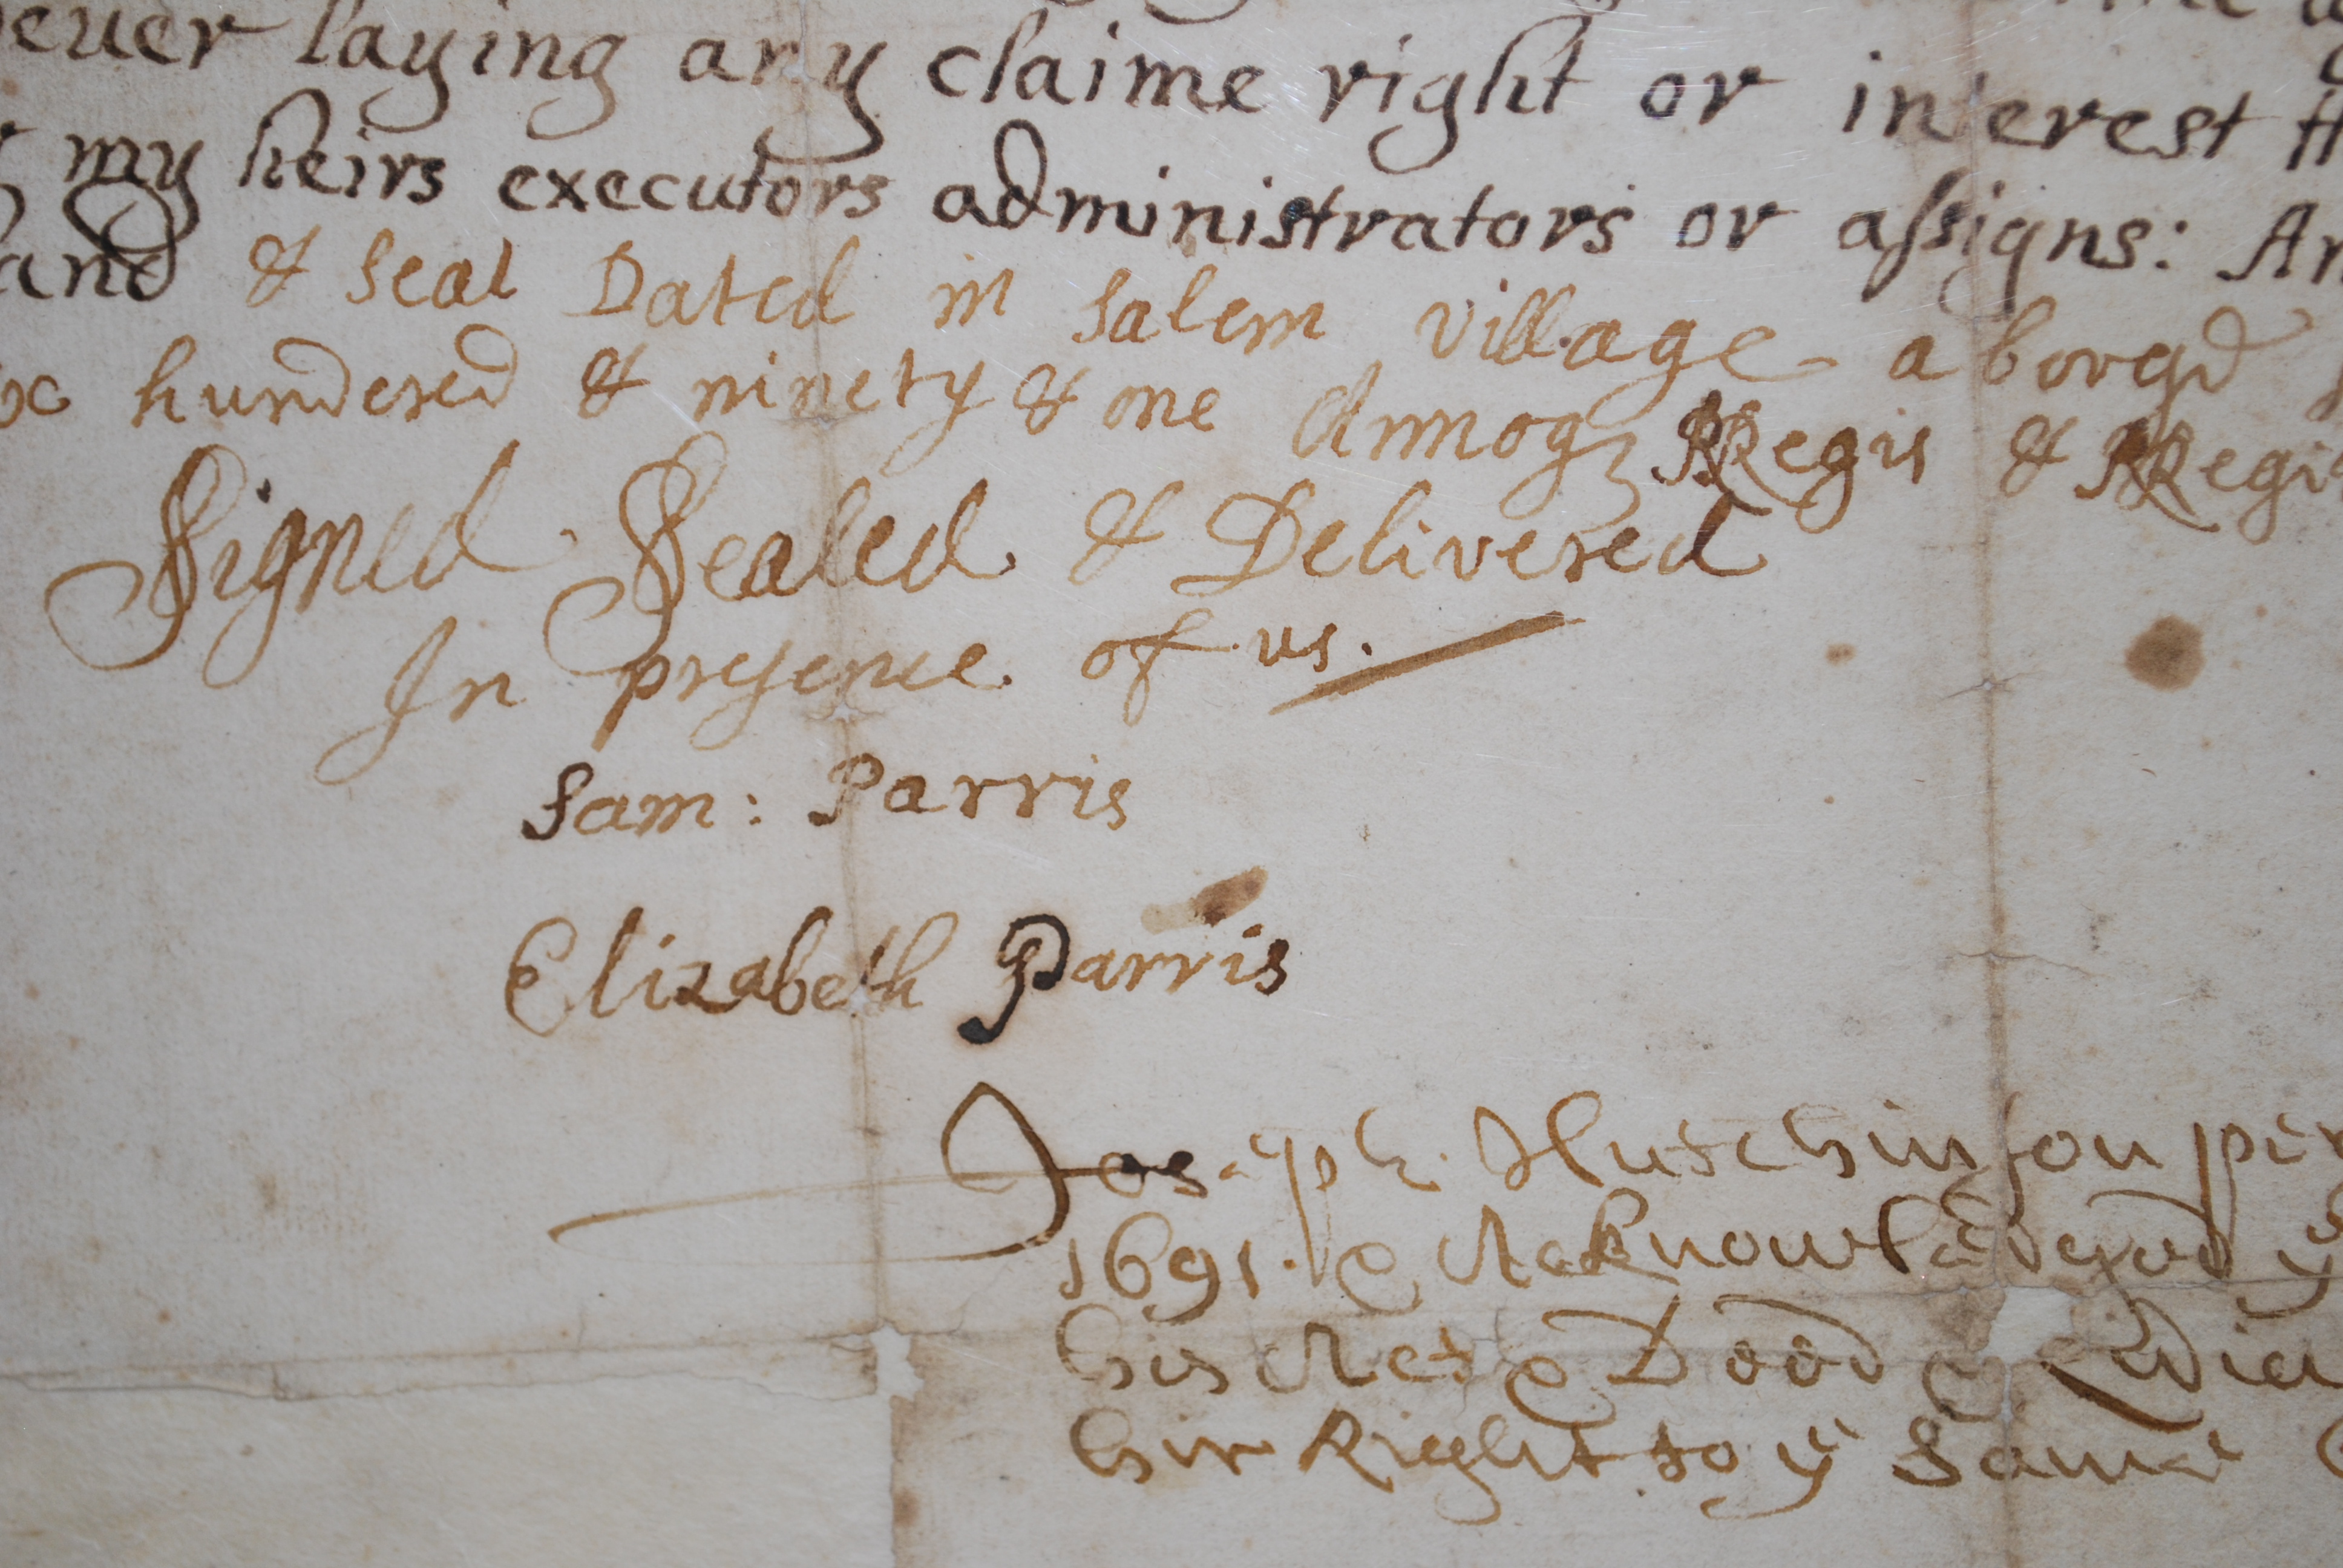 ever laying any claime right or interest
my heirs executors administrators or aſsigns:
hand & Seal Dated in Salem village aboveſd
hundered & ninety & one Annoq Regis &
Signed Sealed & Delivered
In preſence of us.
Sam: Parris
Elizabeth Parris
Joseph Hutchinſon
1691. & Acknowladged yͤ
his Act & Deed &
hir Right to yͤ Same